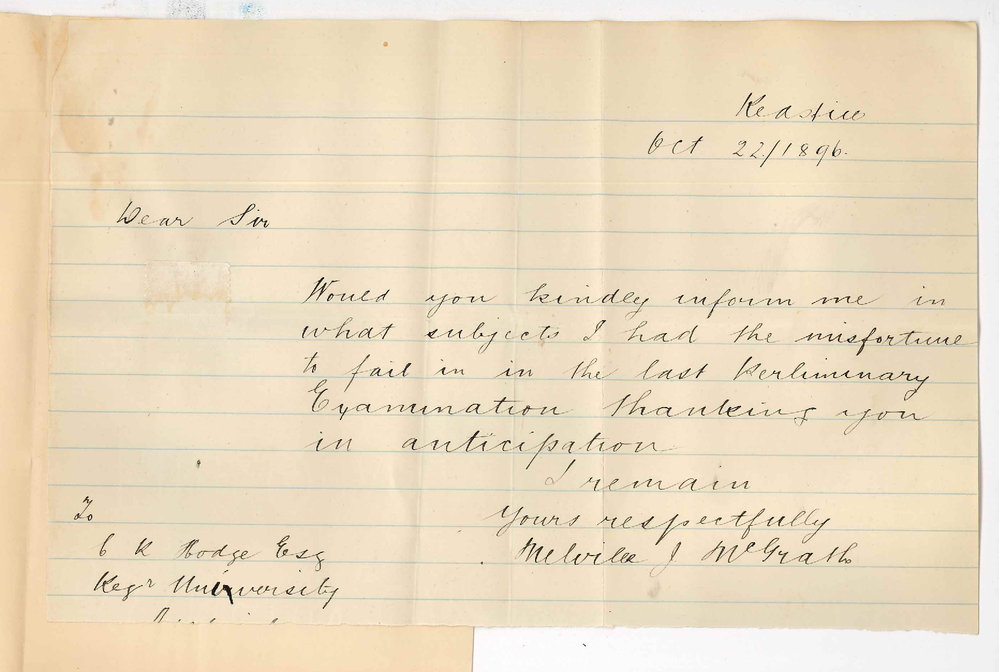 Redhill
Oct 22/1896.
Dear Sir
Would you kindly inform me in
what subjects I had the misfortune
to fail in in the last Perliminary
Examination thanking you
in anticipation
I remain
Yours respectfully
Melville J McGrath
To
C R Hodge Esq
Regr University